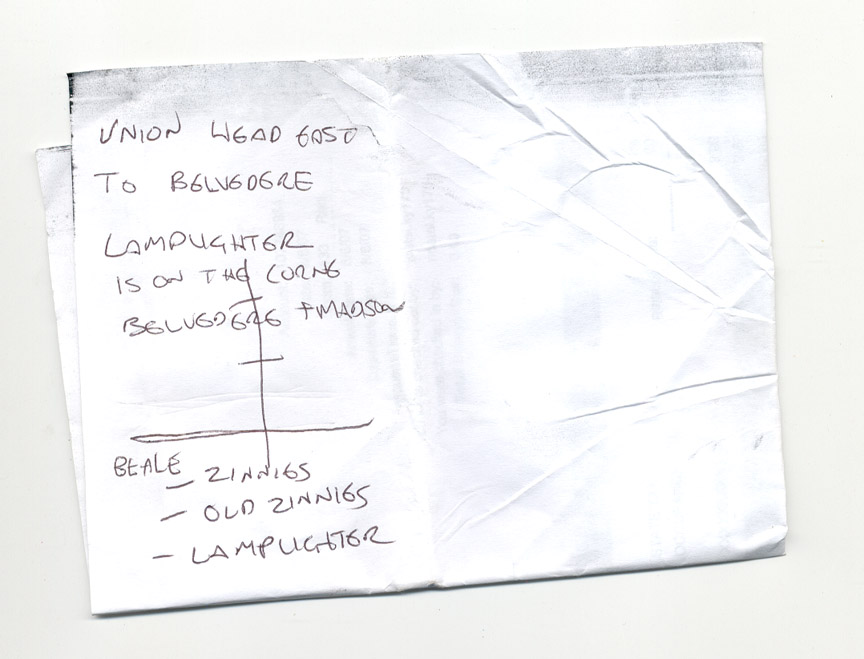 UNION HEAD EAST
TO BELVEDERE
LAMPLIGHTER
IS ON THE CORNE
BELVEDERE + MADSON
BEALE
– ZINNIES
– OLD ZINNIES
– LAMPLIGHTER